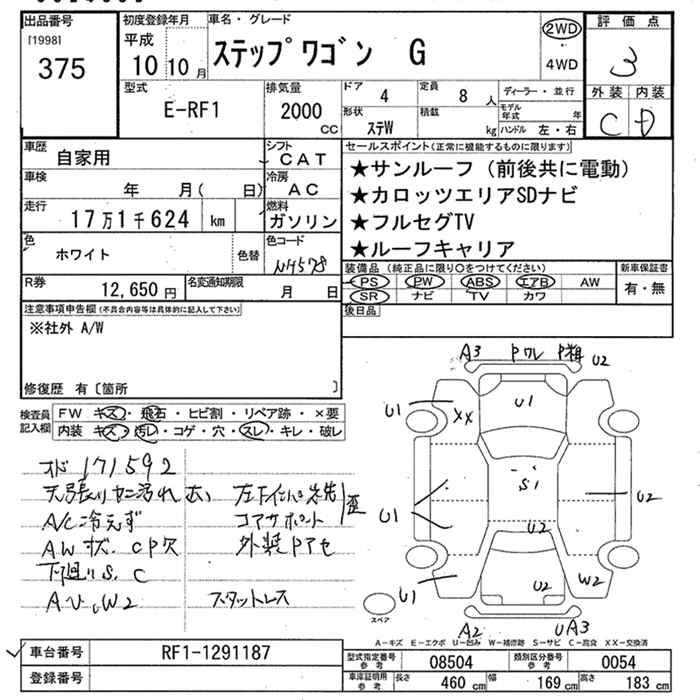 出品番号
[1998]
375
初度登録年月
平成
10 10 月
車名・グレード
ステップワゴン G
2WD
4WD
評価点
3
外装 内装
C D
型式
E-RF1
排気量
2000 cc
ドア
4
定員
8 人
ディーラー・並行
モデル年式 年
形状
ステW
積載 kg
ハンドル 左・右
車歴
自家用
シフト
CAT
車検
年 月( 日)
冷房
AC
走行
17万1千624 km
燃料
ガソリン
色
ホワイト
色替
色コード
NH578
R券
12,650 円
名変通知期限
月 日
セールスポイント(正常に機能するものに限ります)
★サンルーフ(前後共に電動)
★カロッツエリアSDナビ
★フルセグTV
★ルーフキャリア
装備品(純正品に限り○をつけてください)
PS PW ABS エアB AW
SR ナビ TV カワ
新車保証書
有・無
後日品
注意事項申告欄(不具合内容等は具体的に記入して下さい)
※社外 A/W
修復歴 有〔箇所 〕
検査員記入欄
FW キズ・飛石・ヒビ割・リペア跡・×要
内装 キズ・汚レ・コゲ・穴・スレ・キレ・破レ
171592
A/C冷えず
コアサポート
AW
下廻りS.C
W2
スタットレス
A3 Pワレ U2
U1
U1
XX
S1
U2
U1
U2
U1
U2
W2
A2 UA3
スペア
A-キズ E-エクボ U-凹み W-補修跡 S-サビ C-腐食 XX-交換済
車台番号
RF1-1291187
登録番号
型式指定番号 参考
08504
類別区分番号 参考
0054
車庫証明用 参考
長さ 460 cm 幅 169 cm 高さ 183 cm